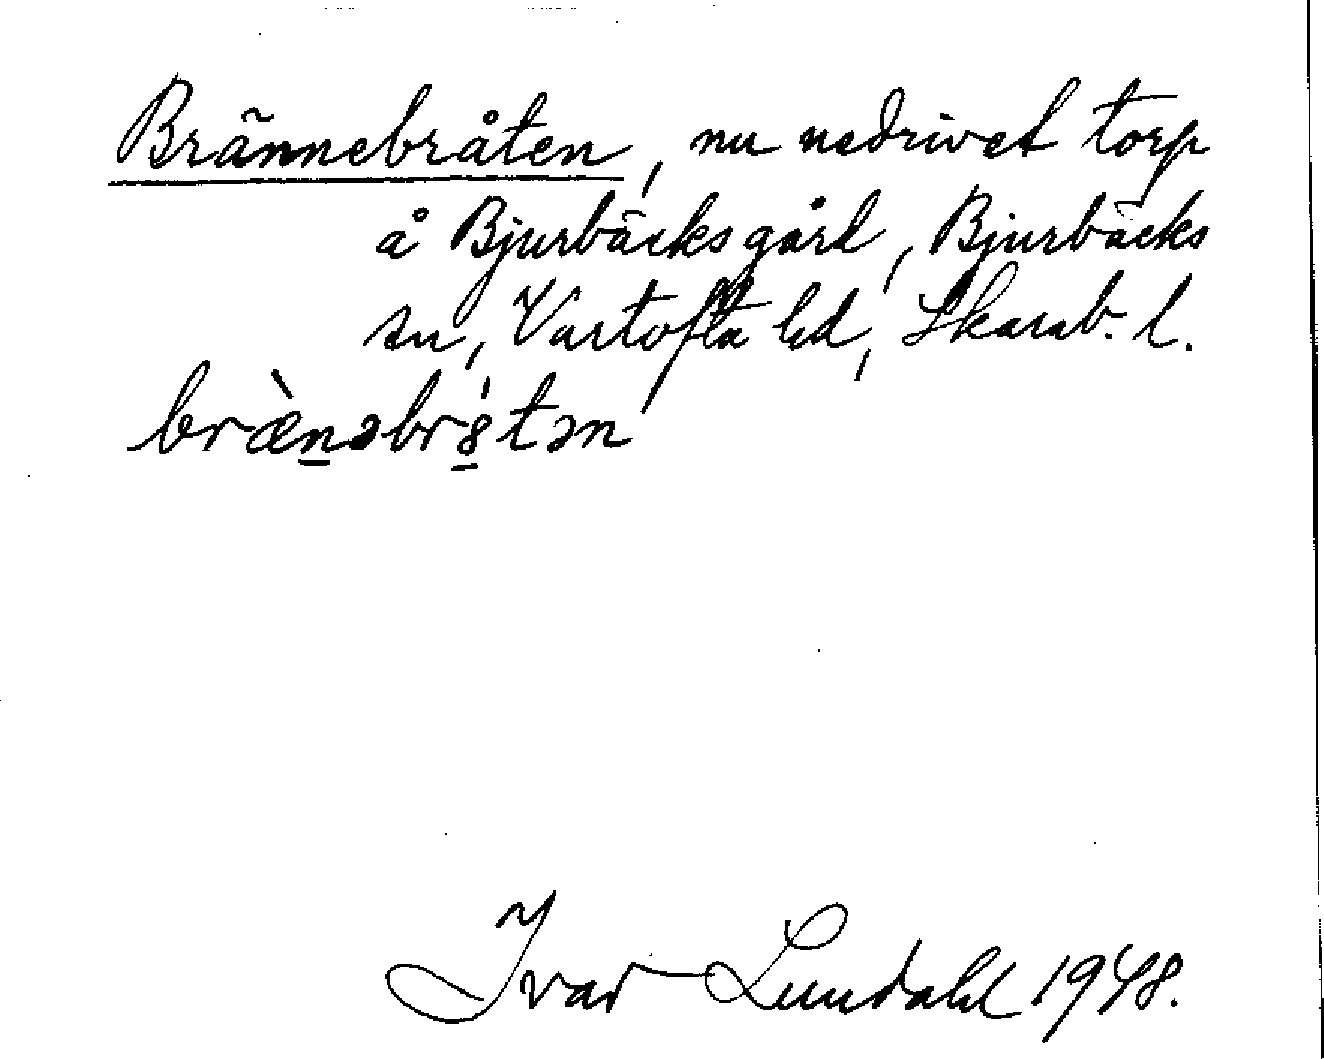 Brännebråten, nu nedrivet torp
å Bjurbäcksgård, Bjurbäcks
sn, Vartofta hd, Skarab. l.
bræ̀nəbr8́tən
Ivar Lundahl 1948.